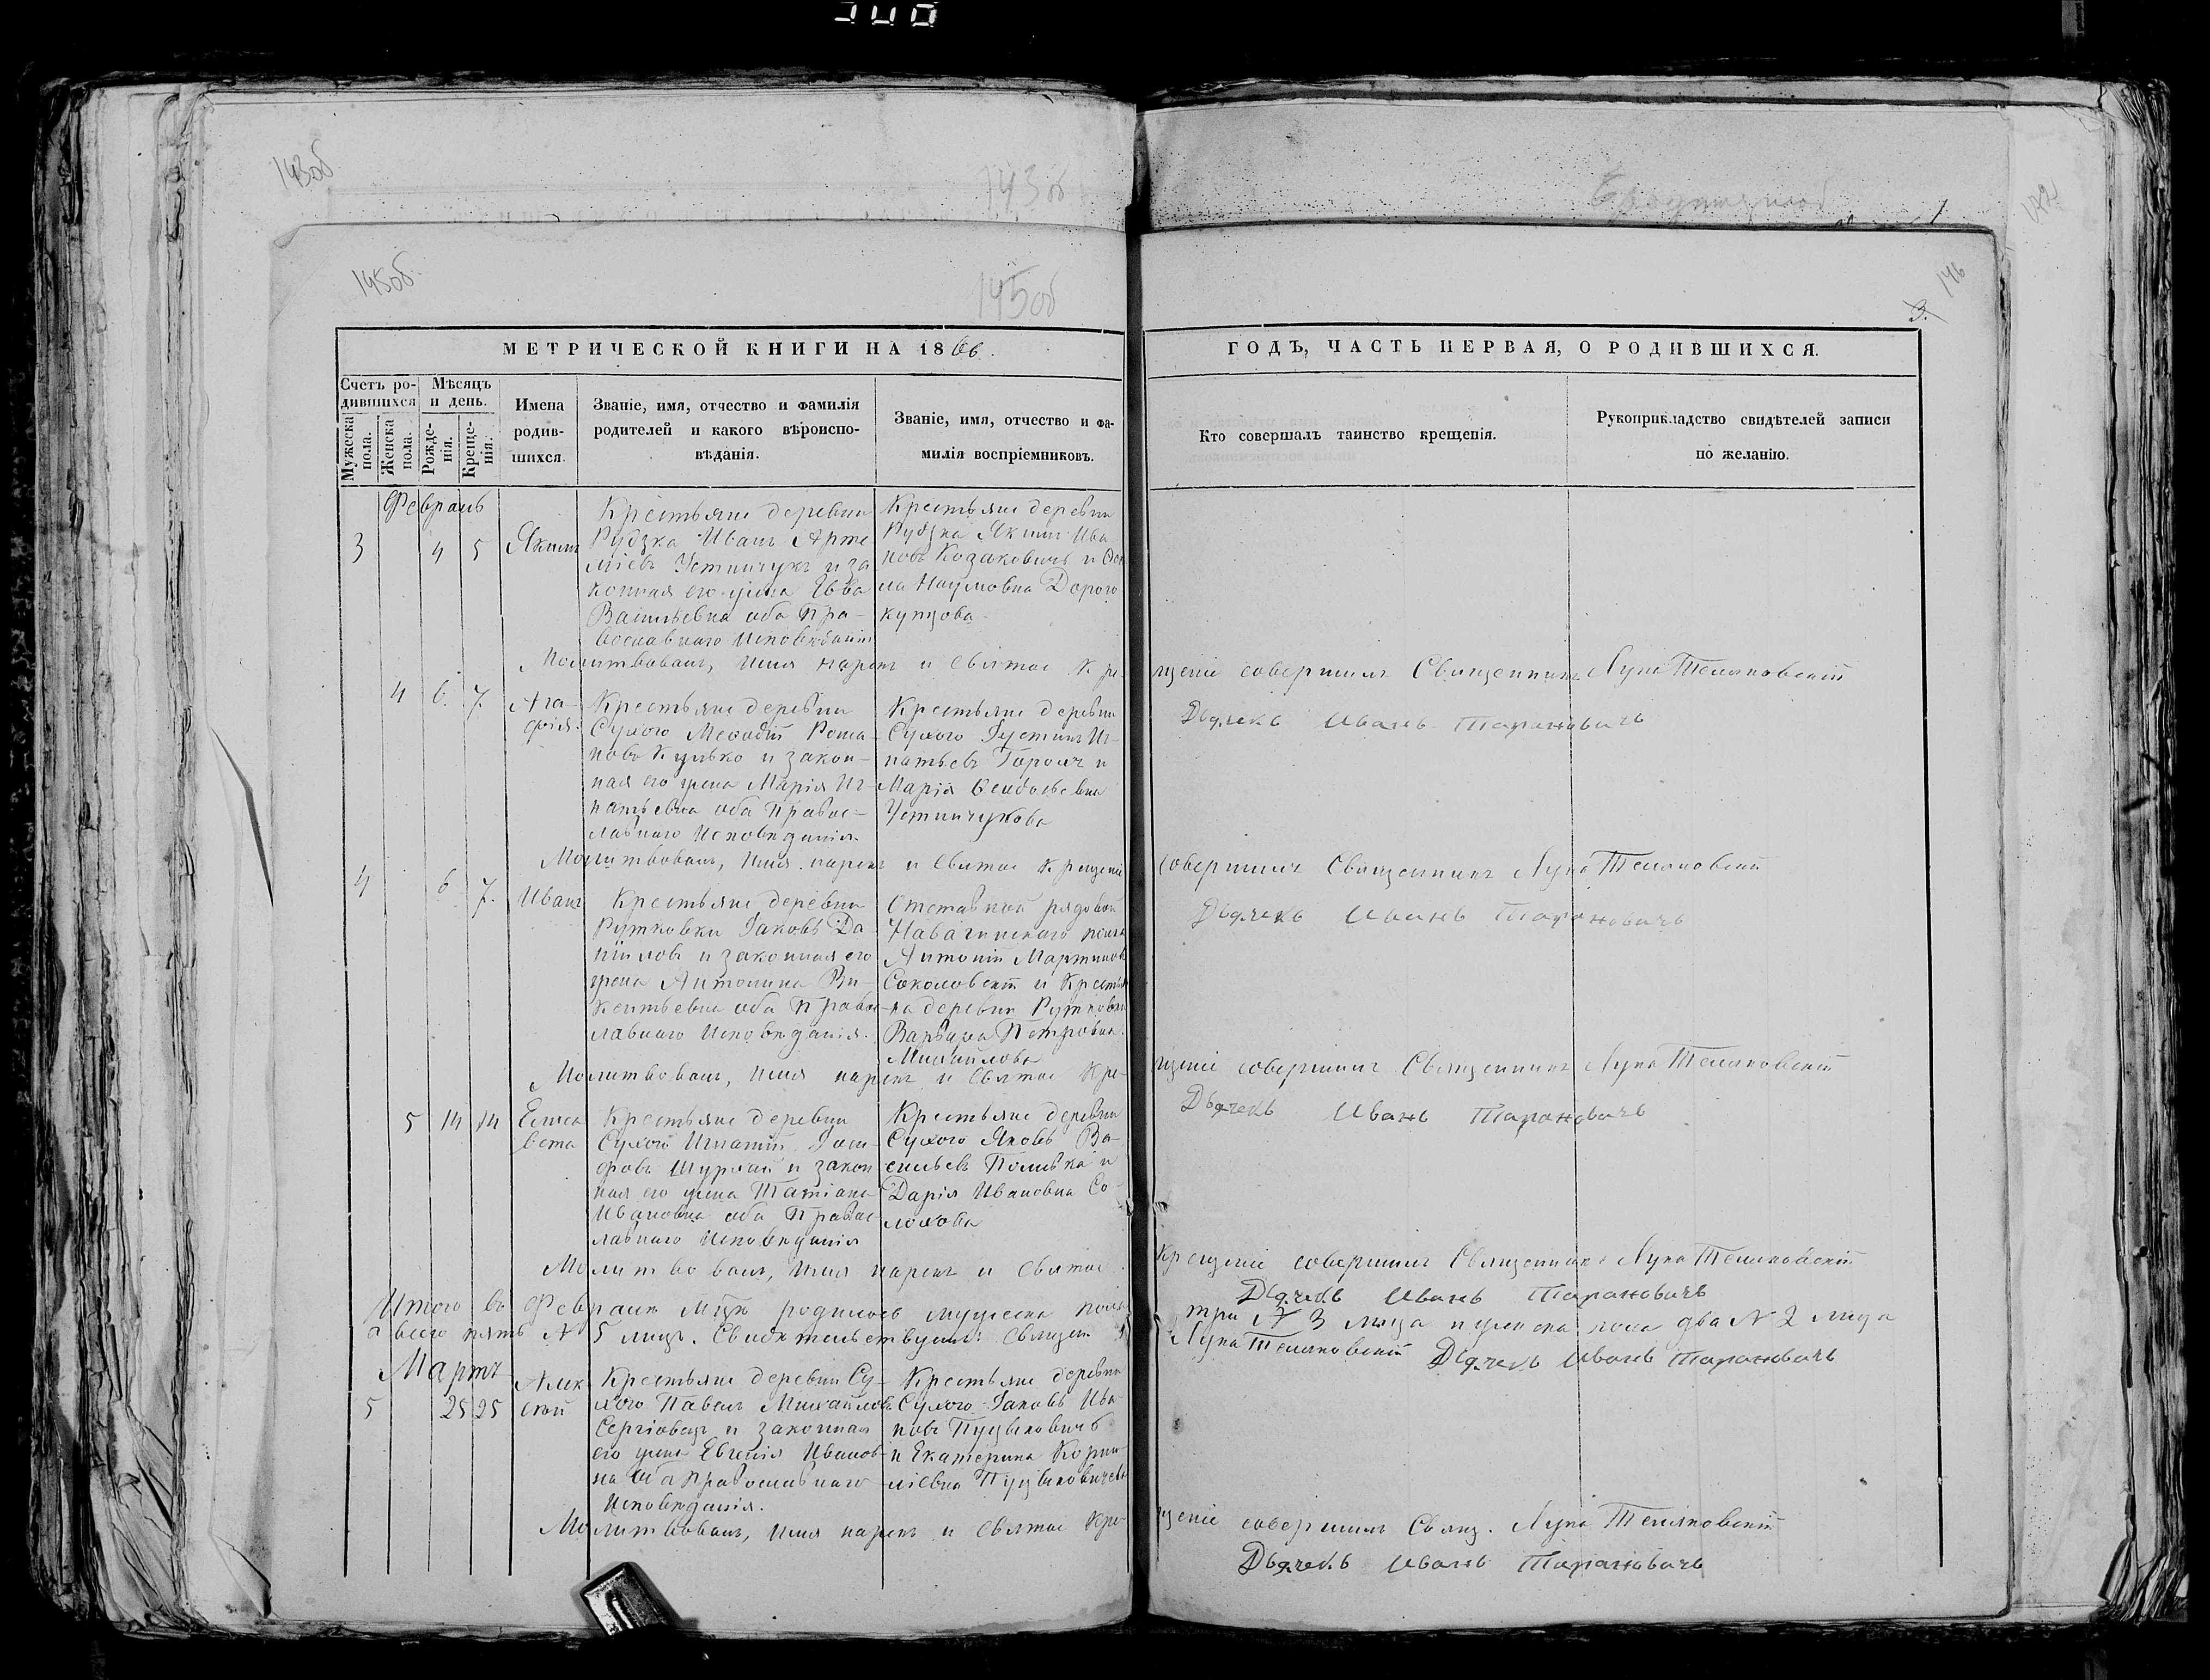 143об
143об
142
145об
145об
146
3.
МЕТРИЧЕСКОЙ КНИГИ НА 1866.
ГОДЪ, ЧАСТЬ ПЕРВАЯ, О РОДИВШИХСЯ.
Счетъ ро-
дившихся
Мужеска
пола.
Женска
пола.
Мѣсяцъ
и день.
Рожде-
нія.
Креще-
нія.
Имена
родив-
шихся.
Званіе, имя, отчество и фамилія
родителей и какого вѣроиспо-
вѣданія.
Званіе, имя, отчество и фа-
милія воспріемниковъ.
Кто совершалъ таинство крещенія.
Рукоприкладство свидѣтелей записи
по желанію.
Февраль
3 4 5 Якимъ
Крестьяне деревни
Рудзка Иванъ Арте
міевъ Устинчукъ и за
конная его жена Евва
Васильевна оба Пра-
вославнаго Исповѣданія
Крестьяне деревни
Рудзка Якимъ Ива
новъ Козаковичъ и
Наумовна Дорого
купцова
Молитвовалъ, Имя нарекъ и Святое Кре-
щеніе совершилъ Священникъ Лука Теляковскій
Дьячекъ Иванъ Тарановичъ
4 6. 7. Ага-
фія.
Крестьяне деревни
Сухого Меѳодій Рома-
новъ Кулько и закон-
ная его жена Марія Иг-
натьевна оба Правос-
лавнаго Исповѣданія.
Крестьяне деревни
Сухого Іустинъ Иг-
натьевъ и
Марія
Устинчукова
Молитвовалъ, Имя нарекъ и Святое Крещеніе
совершилъ Священникъ Лука Теляковскій
Дьячекъ Иванъ Тарановичъ
4 6 7. Иванъ
Крестьяне деревни
Рутковки Іаковъ Да-
ниловъ и законная его
жена Антонина Ви-
кентьевна оба Правос-
лавнаго Исповѣданія.
Отставной рядовой
Навагинскаго полка
Антоній Мартиновъ
Соколовскій и Крестьян-
ка деревни Рутковки
Варвара Петровна
Михайлова
Молитвовалъ, Имя нарекъ и Святое Кре-
щеніе совершилъ Священникъ Лука Теляковскій
Дьячекъ Иванъ Тарановичъ
5 14 14 Елиса
вета
Крестьяне деревни
Сухого Игнатій Іоси-
фовъ и закон
ная его жена Татіана
Ивановна оба Правос-
лавнаго Исповѣданія
Крестьяне деревни
Сухого Яковъ Ва-
сильевъ Поливка и
Дарія Ивановна Со-
лохова
Молитвовалъ, Имя нарекъ и Святое
Крещеніе совершилъ Священникъ Лука Теляковскій
Дьячекъ Иванъ Тарановичъ
Итого въ Февралѣ Мцѣ родилось мужеска пола
три № 3 лица и женска пола два № 2 лица
а всего пять № 5 лицъ. Свидѣтельствуемъ: Священ.
Лука Теляковскій Дьячекъ Иванъ Тарановичъ
Мартъ
5 25 25 Алек
сѣй
Крестьяне деревни Су-
хого Павелъ Михайловъ
и законная
его жена Евгенія Иванов-
на оба Православнаго
Исповѣданія.
Крестьяне деревни
Сухого Іаковъ Ива
новъ Пуцыковичъ
и Екатерина Корни-
ліевна Пуцыковичева
Молитвовалъ, Имя нарекъ и Святое Кре-
щеніе совершилъ Свящ. Лука Теляковскій
Дьячекъ Иванъ Тарановичъ